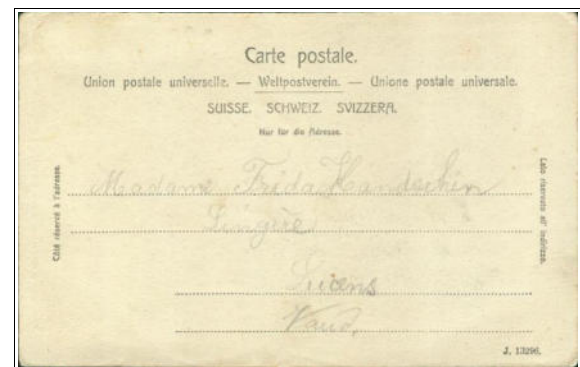 Carte postale.
Union postale universelle. — Weltpostverein. — Unione postale universale.
SUISSE. SCHWEIZ. SVIZZERA.
Nur für die Adresse.
Côté réservé à l'adresse.
Madame Frida Handschin
Lingère
Lucens
Vaud.
Lato riservato all' indirizzo.
J. 13296.